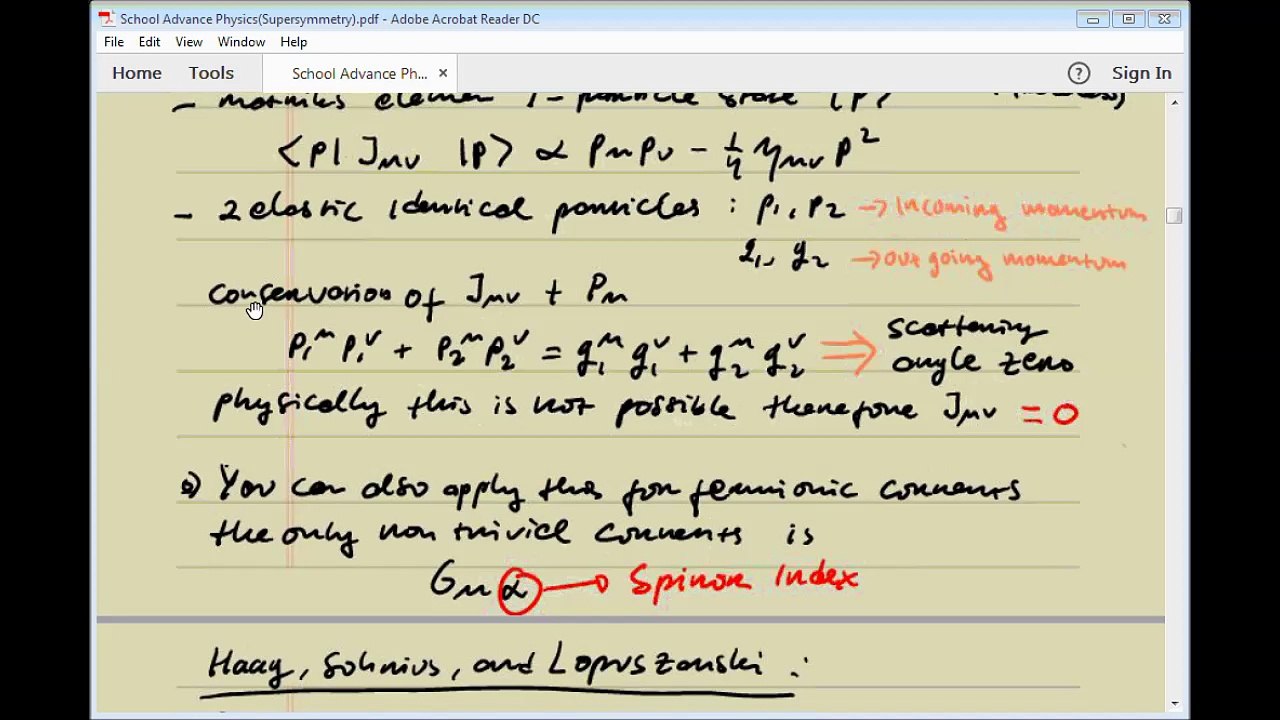 School Advance Physics(Supersymmetry).pdf - Adobe Acrobat Reader DC
File Edit View Window Help
Home Tools School Advance Ph... × ? Sign In
- 1-particle state |P>
<P| Jμν |P> ∝ PμPν - 1/4 ημν P²
- 2 elastic identical particles : P1, P2 → Incoming momentum
q1, q2 → outgoing momentum
conservation of Jμν + Pμ
P1^μ P1^ν + P2^μ P2^ν = q1^μ q1^ν + q2^μ q2^ν ⇒ scattering angle zero
physically this is not possible therefore Jμν = 0
You can also apply this for fermionic currents
the only non trivial currents is
Gμα → Spinor Index
Haag, Sohnius, and Lopuszanski :